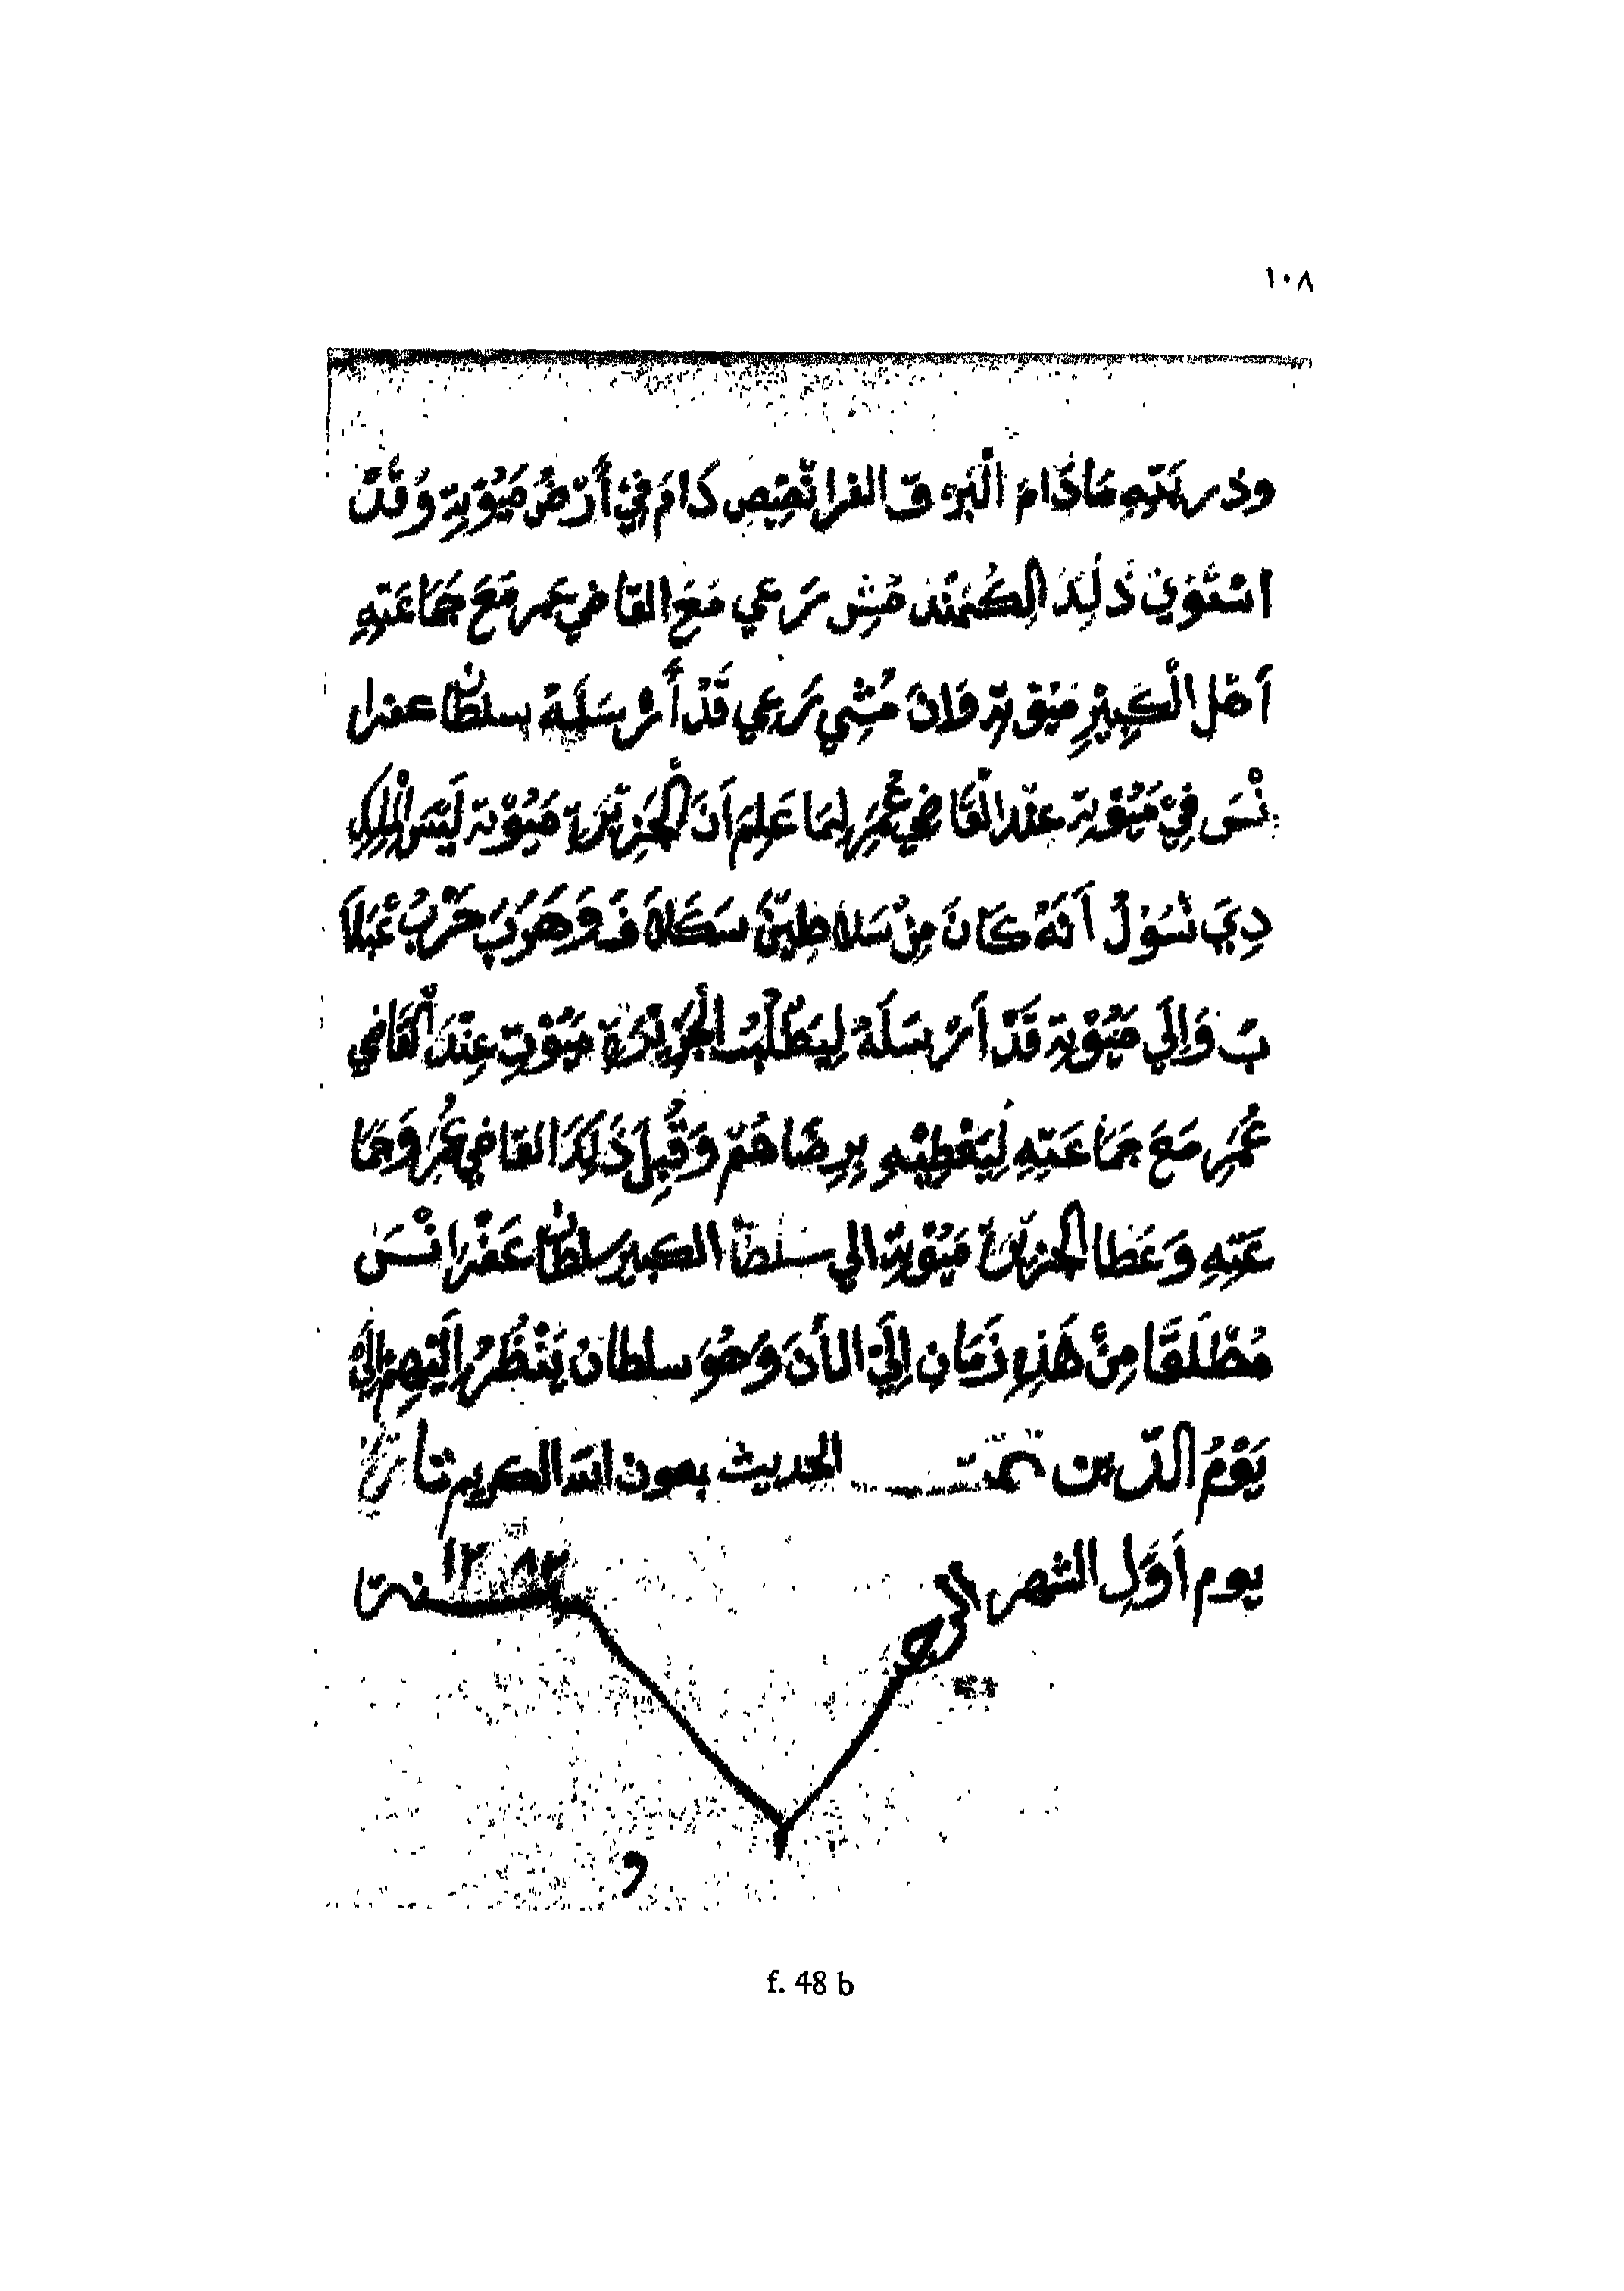 ١٠٨
وذريته مَا دَامَ الْبَروق الفرانصِيص دَامَ فِيْ أَرْضُ مَيُوْتِة وَقَدْ
اسْتَوَيْ ذَلِكَ الكُمَنْد مُشِ رَعِي مَعَ القَاضِي عمر مَعَ جَمَاعَتِهِ
اَهْل الْكَبِيْرِ مَيُوْتِة وَانَ مُشِي رَعِي قَدْ أَرْسَلَهُ سلطان عفرا
نْسَ فِيْ مَيُوْتِة عند القَاضِي عُمَرِ لِمَا عَلِمَ اَنَ الْجَزِيْرَة مَيُوْتة لَيْسَ لِلْمَلِكِ
دِيَ نْسُوْلُ اَنَهُ كَانَ مِنْ سَلاطِيْنَ سَكَلاَفَ وَهَرَبَ حَرْبُ غَبَلاَ
بَ وَاِلَي مَيُوْتة قَدْ اَرْسَلَهُ لِيَطْلُبُ الْجَزِيْرَة مَيُوْتِ عِنْدَ الْقَاضِي
عُمَرِ مَعَ جَمَاعَتِهِ لِيَعْطِيْهِ بِرِضَاهُمْ وَقَبِلَ ذَلِكَ القاضِي عُمَر وَجَمَا
عَتِهِ وَعَطَا الجزيرة مَيُوْتِة الي سَلطان الكبير سلطان عَفْرَانْسَ
مُطْلَقًا مِنْ هَذِهِ زَمَانِ اِلَيْ الأَنَ وَهُوَ سلطان يَنْظُرُ اِلَيْهِمْ اِلَيْ
يَوْمُ الدّين تمّت الحديث بعون الله الكريم تاريخ
يوم اَوَّلِ الشهر الرجب
سنة ١٢٨٢ تا
و
f. 48 b